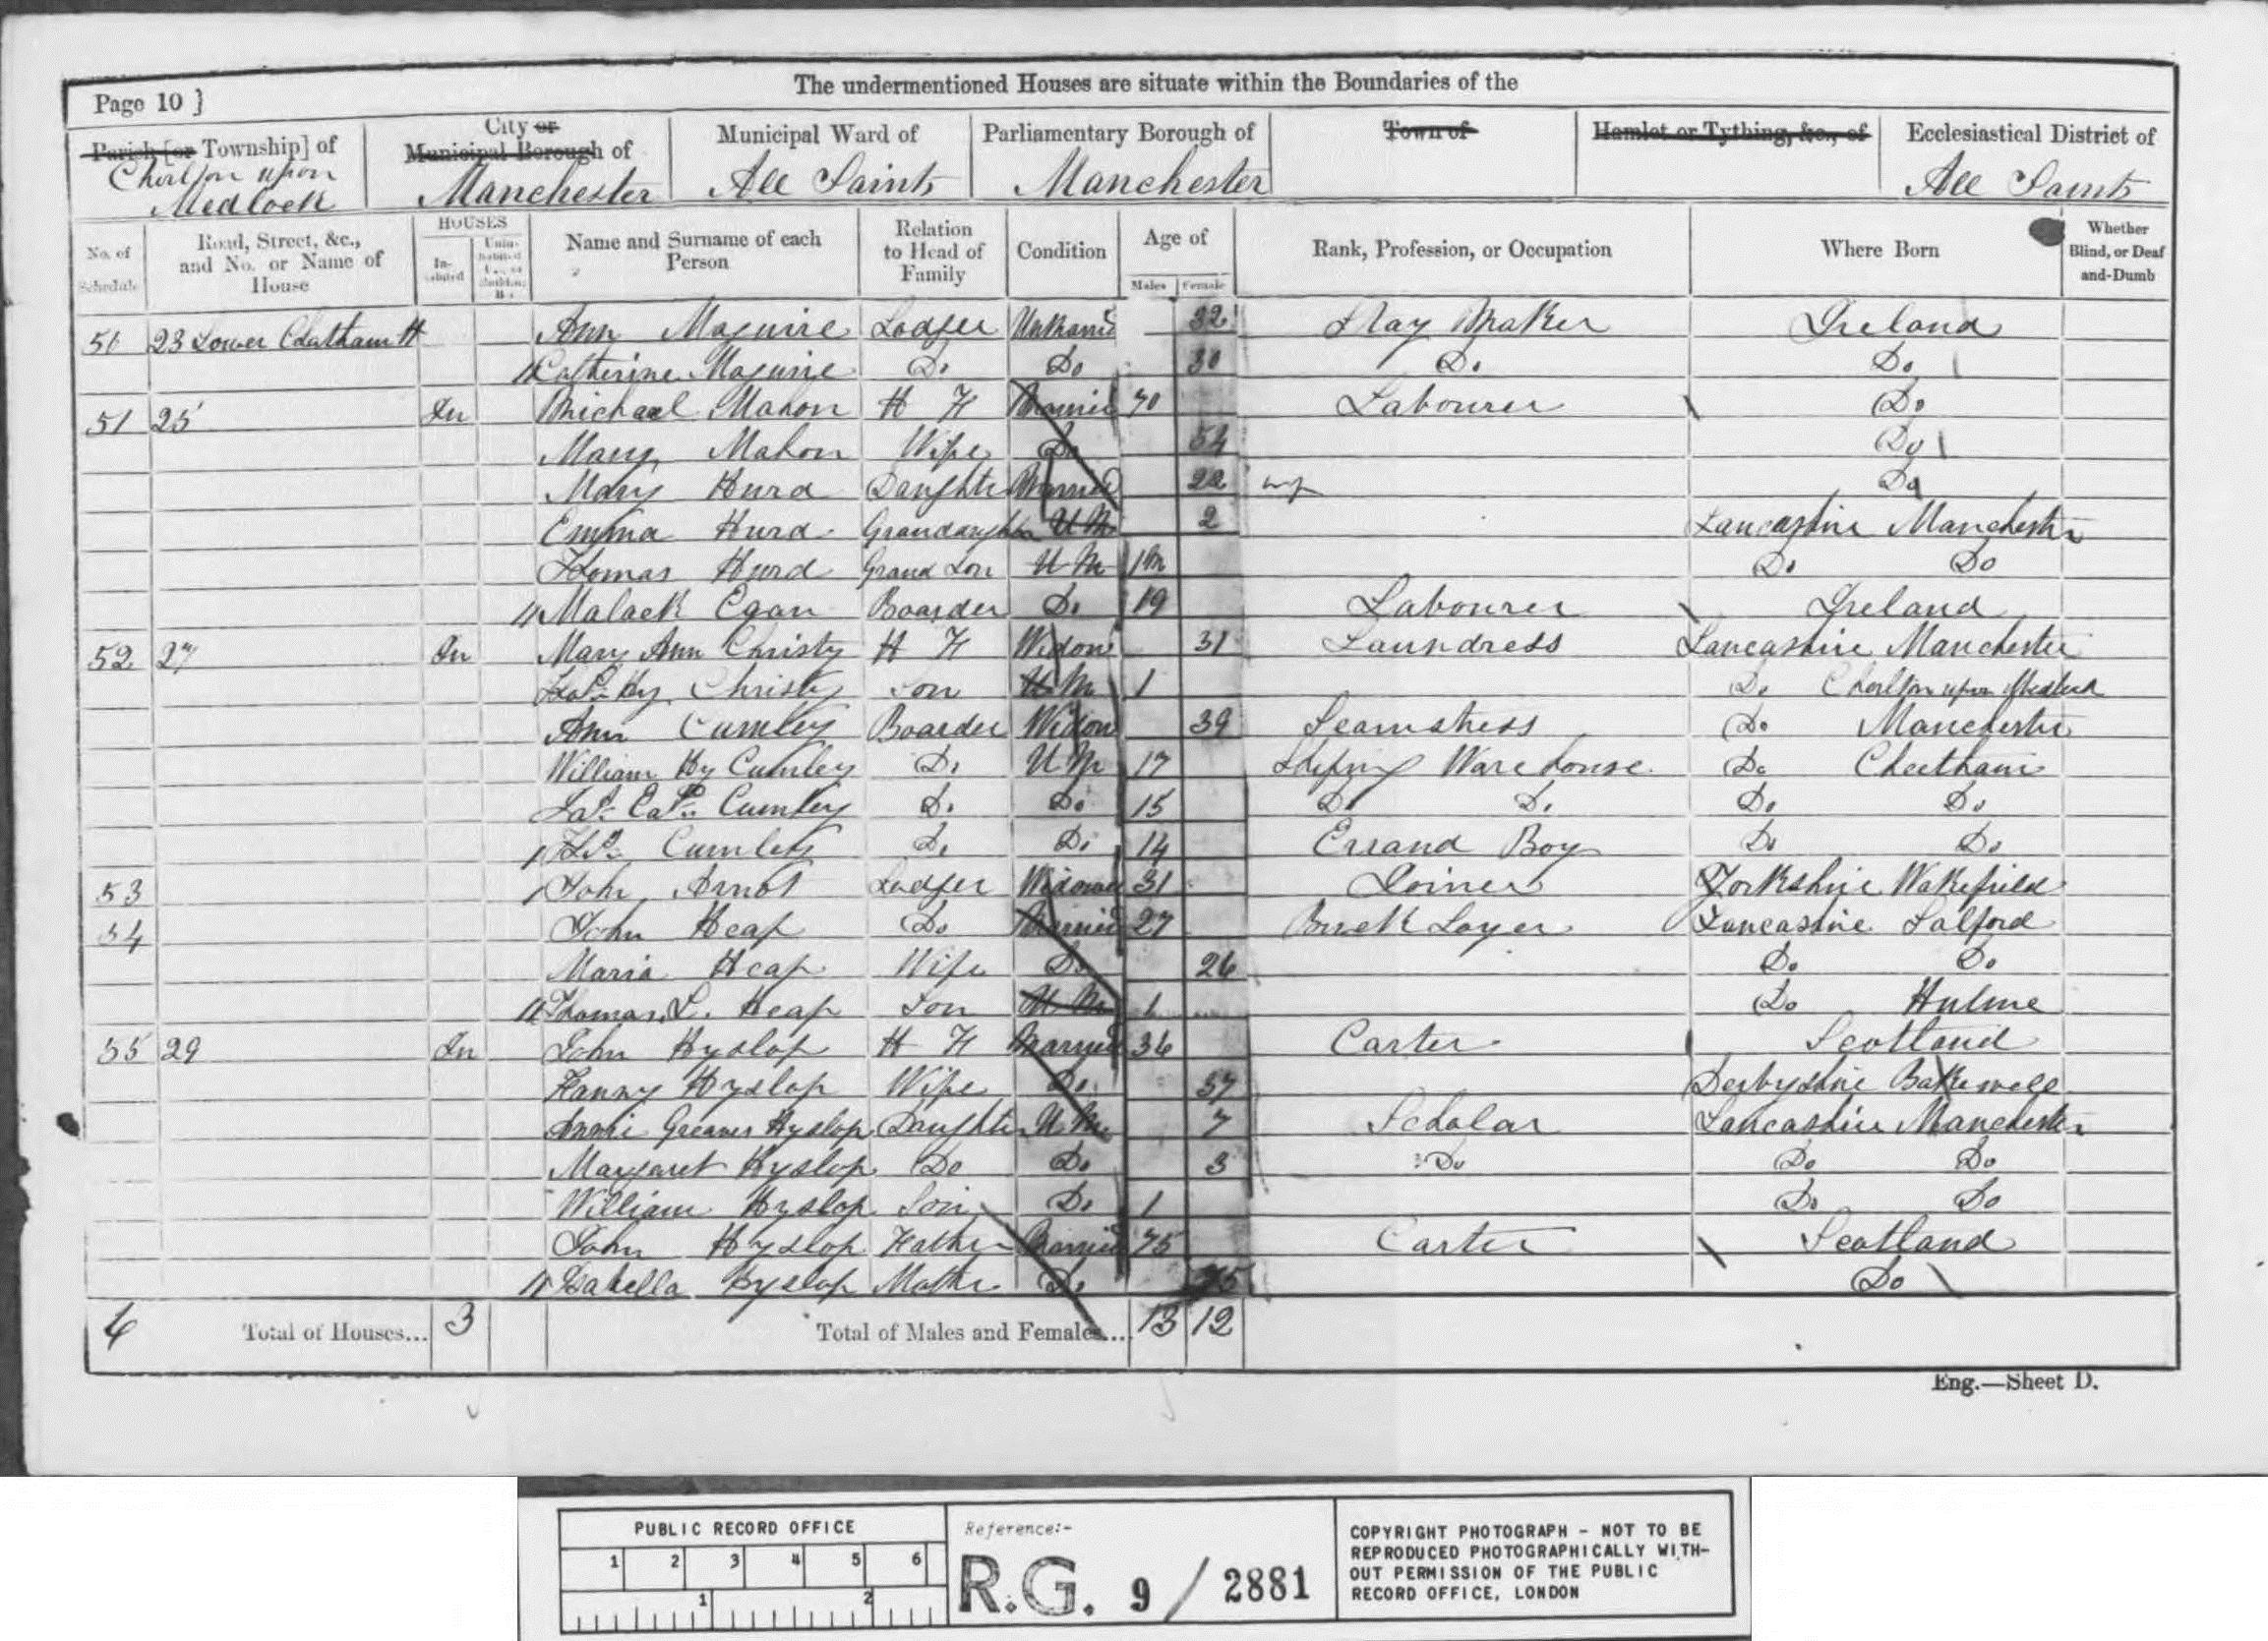 The undermentioned Houses are situate within the Boundaries of the
Page 10 ]
Parish [or Township] of
Chorlton upon
Medlock
City or
Municipal Borough of
Manchester
Municipal Ward of
All Saints
Parliamentary Borough of
Manchester
Town of
Hamlet or Tything, &c., of
Ecclesiastical District of
All Saints
No. of
Schedule
Road, Street, &c.,
and No. or Name of
House
HOUSES
In-
habited
Name and Surname of each
Person
Relation
to Head of
Family
Condition
Age of
Males
Female
Rank, Profession, or Occupation
Where Born
Whether
Blind, or Deaf
and-Dumb
23 Lower Chatham St Ann Maguire Lodger Unmarrd 32 Hay Maker Ireland
Catherine Maguire Do Do 30 Do Do
51 25 In Michael Mahon H F Married 70 Labourer Do
Mary Mahon Wife Do 54 Do
Mary Hurd Daughter Married 22 Do
Emma Hurd Grandaughter U M 2 Lancashire Manchester
Thomas Hurd Grand Son U M 1m Do Do
Malack Egan Boarder Do 19 Labourer Ireland
52 27 In Mary Ann Christy H F Widow 31 Laundress Lancashire Manchester
Hy Christy Son U M 1 Do Chorlton upon Medlock
Ann Cumley Boarder Widow 39 Seamstress Do Manchester
William Hy Cumley Do U M 17 Shiping Warehouse Do Cheetham
Cumley Do Do 15 Do Do Do Do
Cumley Do Do 14 Errand Boy Do Do
53 John Arnot Lodger Widower 31 Joiner Yorkshire Wakefield
54 John Heap Do Married 27 Brick Layer Lancashire Salford
Maria Heap Wife Do 26 Do Do
Thomas L. Heap Son U M 1 Do Hulme
55 29 In John Hyslop H F Married 36 Carter Scotland
Fanny Hyslop Wife Do 37 Derbyshire Bakewell
Annie Greaves Hyslop Daughter U M 7 Scholar Lancashire Manchester
Margaret Hyslop Do Do 3 Do Do Do
William Hyslop Son Do 1 Do Do
John Hyslop Father Married 75 Carter Scotland
Isabella Hyslop Mother Do 75 Do
Total of Houses... 3 Total of Males and Females... 13 12
Eng.—Sheet D.
PUBLIC RECORD OFFICE
1 2 3 4 5 6
1 2
Reference:-
R.G. 9 / 2881
COPYRIGHT PHOTOGRAPH - NOT TO BE
REPRODUCED PHOTOGRAPHICALLY WITH-
OUT PERMISSION OF THE PUBLIC
RECORD OFFICE, LONDON